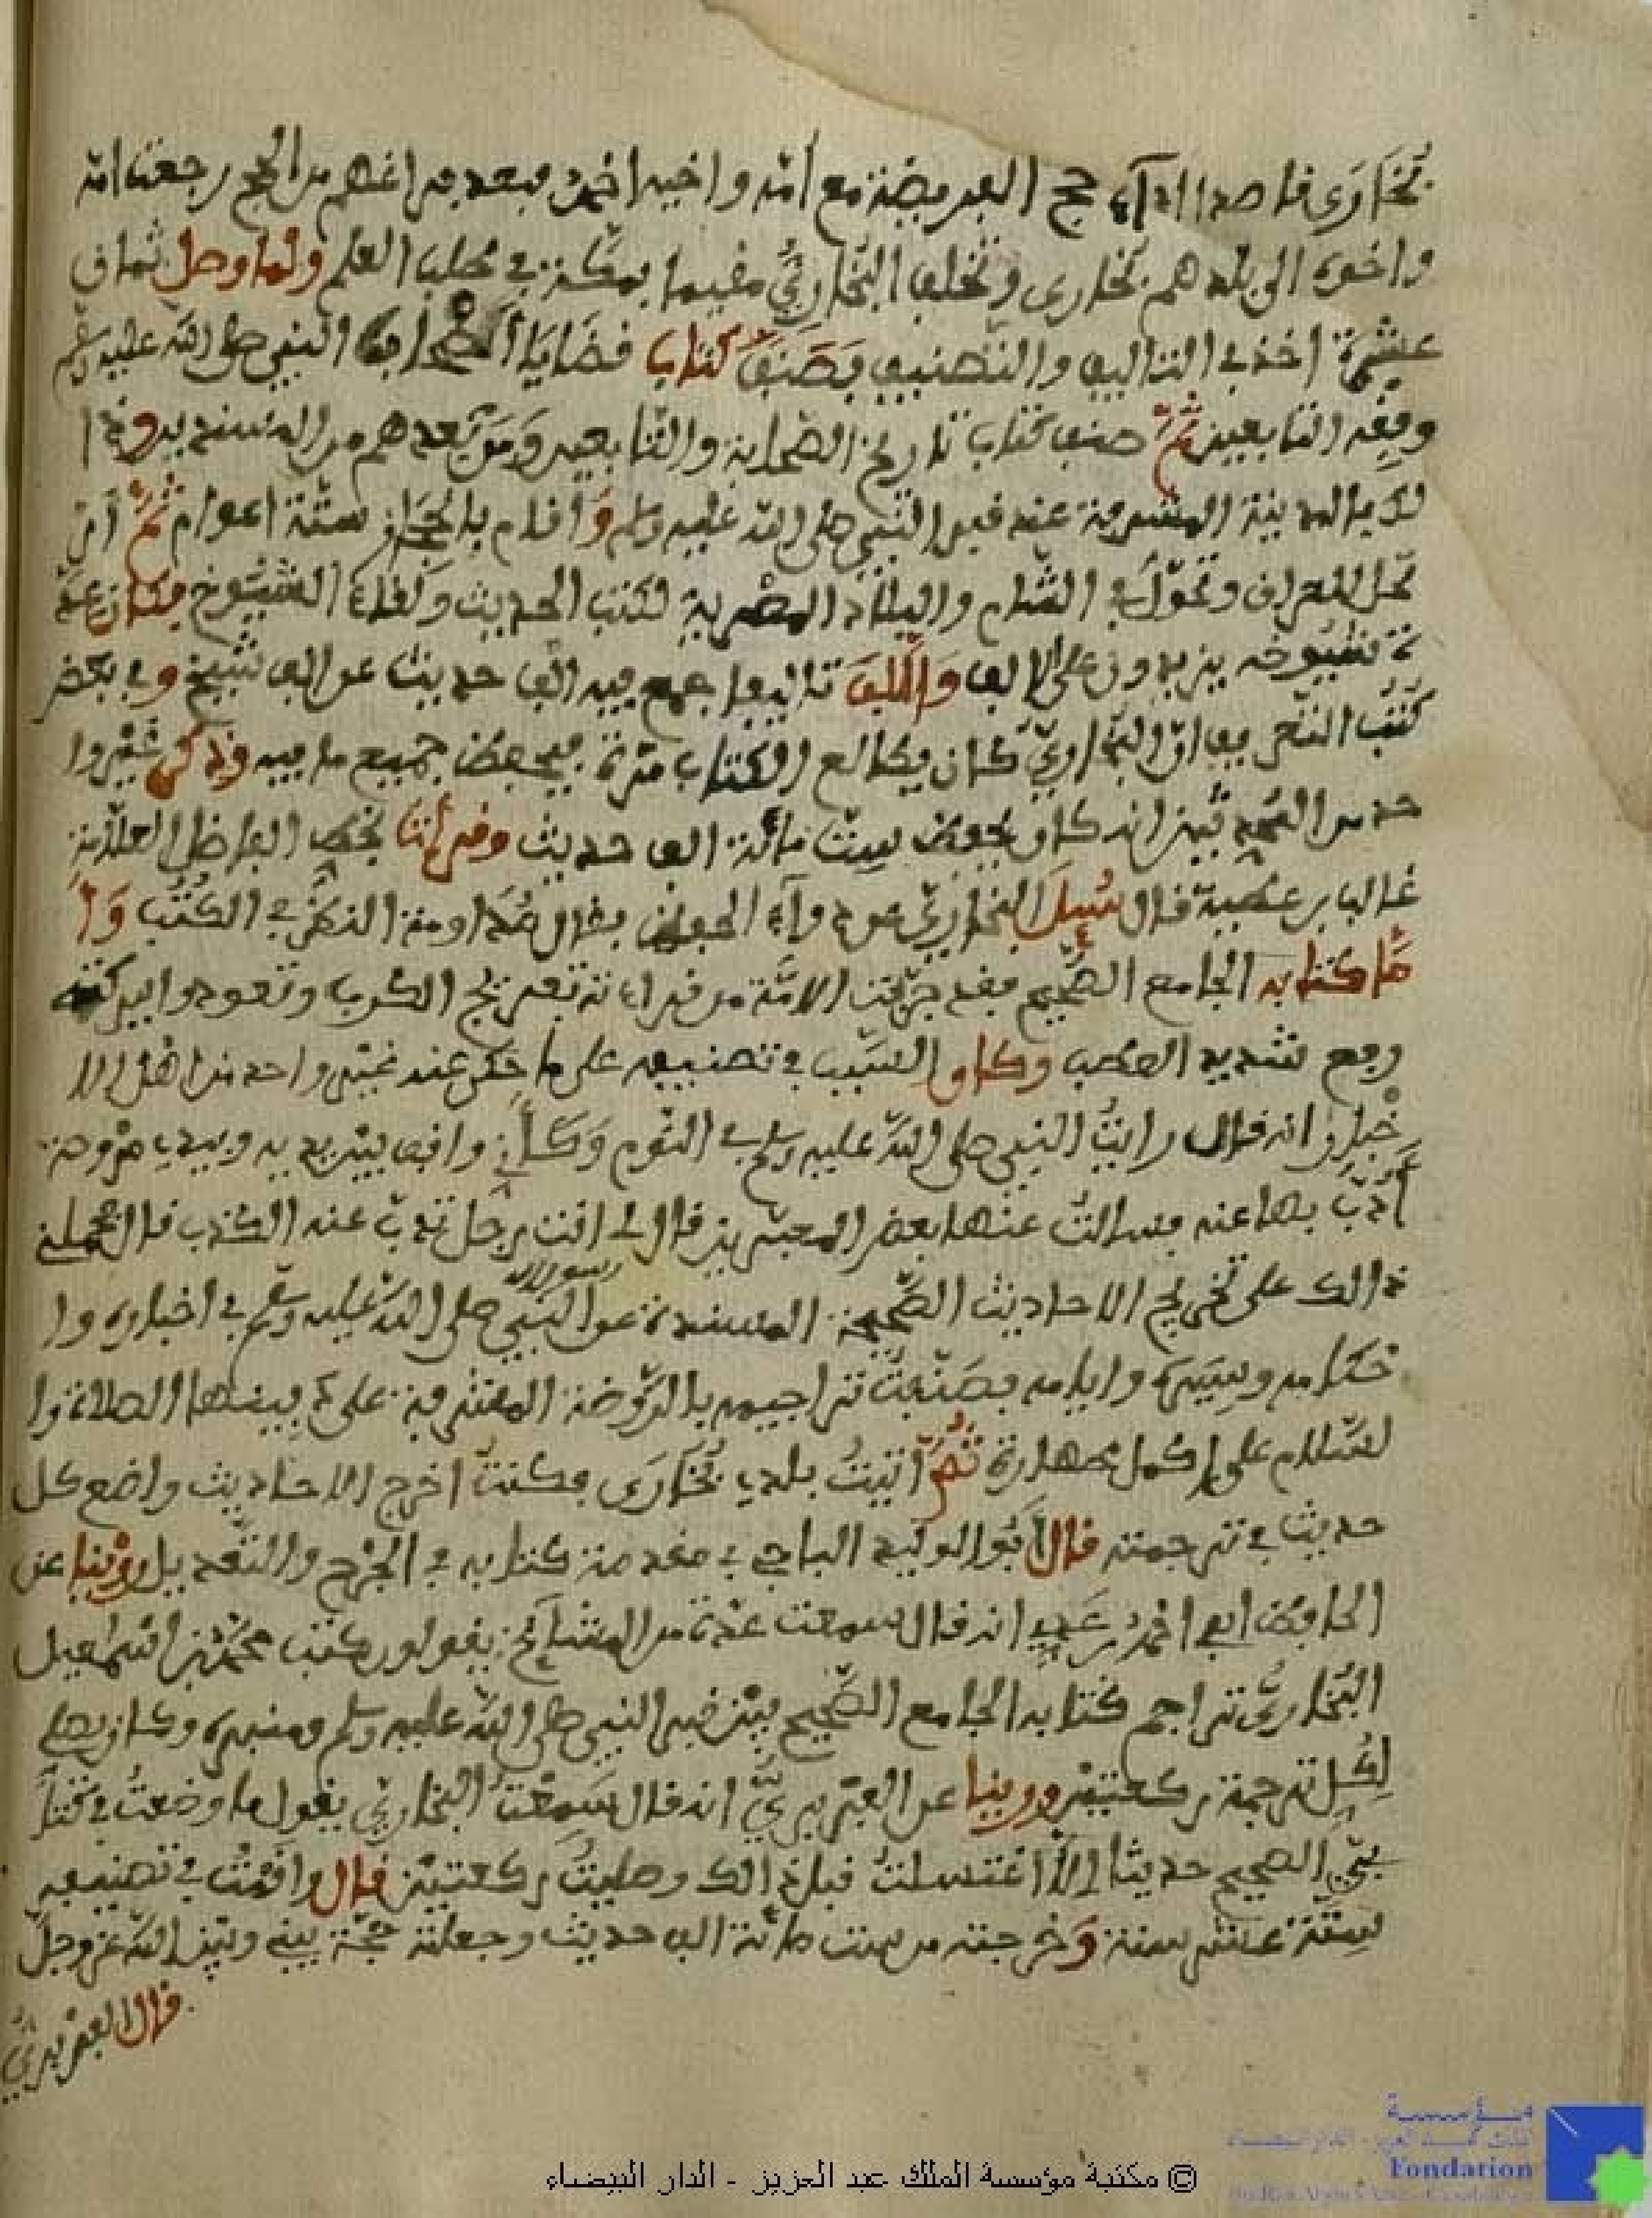 بُخَارَى قاصدا ادآء حج الفريضة مع أمّه واخيه احْمَدَ فبعد فراغهم من الحج رجعت امّه
واخوه الى بلدهم بخارى وتخلف البُخاريُّ مقيما بمكة في طلب العلم ولما وصل ثمان
عشرة اخذ في التاليف والتصنيف فصَنَّفَ كتاب قضَايَا أصحاب النبي صلى الله عليه وسلم
وفِقْه التابعين ثُمَّ صنف كتاب تاريخ الصحابة والتابعين وَمَن بَعدهم من المسندين وذ ا
لك بالمدينة المشرفة عند قبر النبي صلى الله عليه وسلم وَاقام بالحجاز ستة اعوام ثُمَّ أتى
نحل العراق وتحوّل في الشام والبلاد المصْرية لكتب الحديث ولقاء الشيُوخ فكان عِدّ
ة شيُوخه يزيدون على الالف وَأَلَّفَ تاليفا جمع فيه الف حديث عن الف شيخ وفي بعض
كُتُب التعريف انّ البُخاريّ كان يطالع الكتاب مرّة فيحفظ جميع ما فيه وذكر غَيْروا
حد من المحدثين انه كان يحفظ ستّ مائة الف حديث وقرأتُ بخط القاضي العلّامة
غالب بن عطية قال سُئِلَ البُخاريّ عن دوآء الحفظ فقال مُداومة النظر في الكُتُب وَأ
مَّا كتابه الجامع الصَّحيح فقد جرّبت الامّة من قراءته تفريج الكرب وتعودوا ببركته
رفع شديد الخطب وكان السّبب في تصنيفه على ما حكى عنه غيْر واحد من اهْل الا
خْبار انه قال رايتُ النبي صلى الله عليه وسلم في النوم وَكأني واقف بين يديه وبيدي مِرْوحة
أَذُبّ بها عنه فسالتُ عنها بعض المعبّرين قال لي انت رجل تذبّ عنه الكذب قال فحملني
ذالك على تخريج الاحاديث الصَّحيحة المسندة عن النَّبي رسول الله صلى الله عليه وسلم في اخباره وا
حكامه وسِيَره وايامه فصَنّفتُ تراجيمه بالرّوضة المشرفة على دفينها الصلاة وا
لسّلام على اكمل طهارة ثُمّ اتيْتُ بلدي بُخارَى فكنتُ اخرج الاحاديث واضع كل
حديث في ترجمته قال أبُو الوليد الباجي في مقدمة كتابه في الجَرْح والتّعديل روْينا عن
الحافظ ابي احْمَد بن عَدِيٍ انه قال سمعت عدّة من المشايخ يقولون كتب محمّد بْن اسْماعيل
البُخاريُّ تراجم كتابه الجامع الصَّحيح بيْن قبر النبي صلى الله عليه وسلم ومنبره وكان يصلي
لِكُل ترجمة ركعتيْن وروينا عن الفَرَبريِّ انه قال سَمِعْتُ البُخاريّ يقول ما وضعتُ في كتاَ
بِيَ الصحيح حديثا إلاّ اغتسلتُ قبل ذالك وصليتُ ركعتيْن قال واقمْتُ في تصنيفه
سِتّة عشر سنة وَخرجته من ست مائة الف حديث وجعلته حُجّة بيني وبيْن الله عز وجلّ
قال الفربريُّ
مؤسسة
الملك عبد العزيز - الدار البيضاء
Fondation
© مكتبة مؤسسة الملك عبد العزيز - الدار البيضاء